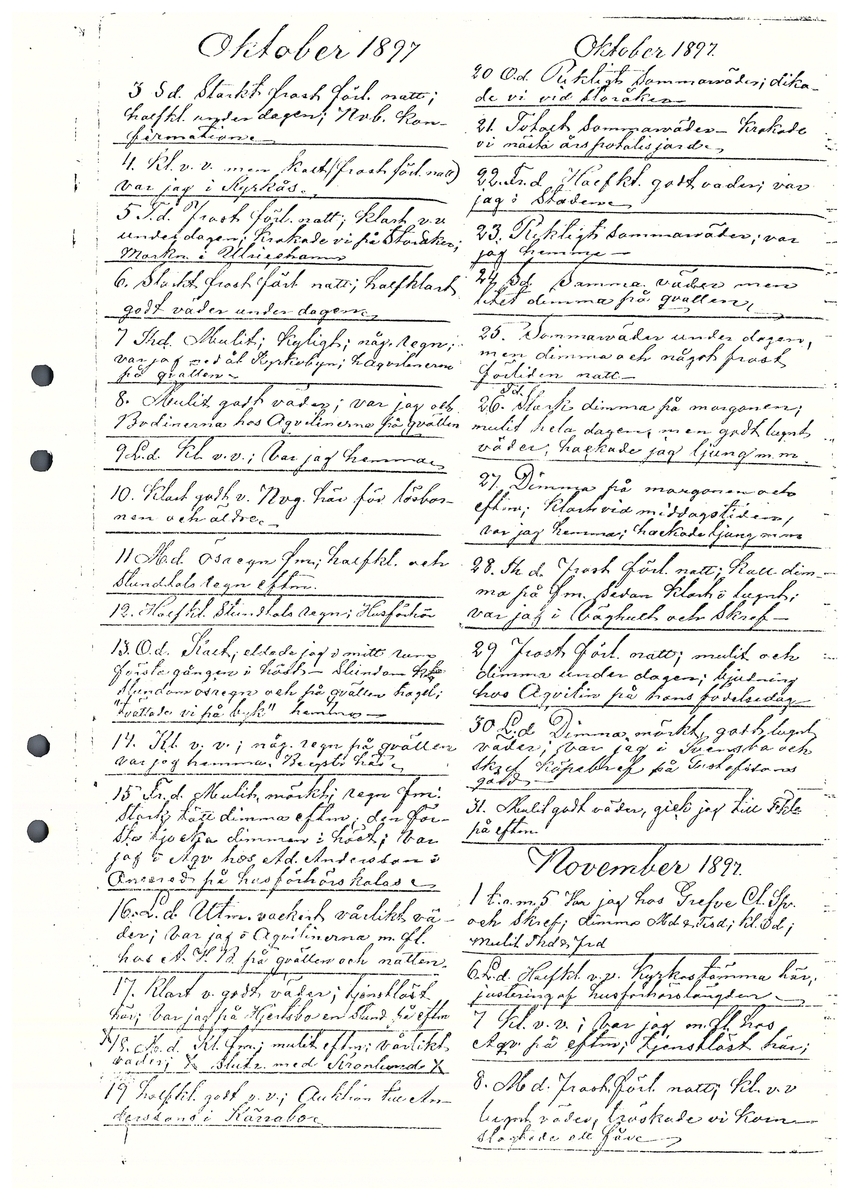 Oktober 1897
3 Sd. Starkt frost förl. natt;
halfkl. under dagen; Nvb. kon-
firmation
4. Kl. v. v. men kort (frost förl. natt)
var jag i Kyrkås.
5 T.d. Frost förl. natt; klart v. v.
under dagen; krokade vi på Storåker;
Markn. i Ulricehamn
6. Starkt frost förl. natt; halfklart
godt väder under dagen
7 Thd. Mulit; kyligt; någ. regn;
var jag ned åt Kyrkobyn; h. Aqvilinerna
på qvällen
8. Mulit godt väder; var jag och
Bodinerna hos Aqvilinerna på qvällen
9 L.d. Kl. v. v.; var jag hemma
10. Klart godt v. Nvg. här för lösbor-
nen och äldre
11 Md. ösregn fm; halfkl. och
stundtals regn eftm.
12. Halfkl. stundtals regn; Husförhör
13. O.d. Kart; eldade jag i mitt rum
första gången i höst - Stundom kl.
stundom ösregn och på qvällen hagel;
"tvättade vi på byk" hemma
14. Kl. v. v.; någ. regn på qvällen
var jag hemma.
15 Fr.d. Mulit, mörkt; regn fm:
Stark, tätt dimma eftm; den för-
sta tjocka dimman i höst; var
jag i Aqv. hos Ad. Andersson i
på husförhörskalas
16. L.d. Utm. vackert vårlikt vä-
der; var jag o Aqvilinerna m. fl.
hos A. F. B. på qvällen och natten.
17. Klart v. godt väder; tjenstlöst
här; var jag på Hjertsbo en stund på eftm
X 18. M.d. Kl. fm; mulit eftm; vårlikt
väder; X Slutr. med Kronhunds X
19 halfkl. godt v. v.; Auktion till An-
derssons i Kärrabo
Oktober 1897.
20 O.d. Riktigt sommarväder; dika-
de vi vid Storåker
21. Totalt sommarväder - krokade
vi nästa års potatisjord
22. Fr.d. Halfkl. godt väder; var
jag i Staden
23. Riktigt sommarväder; var
jag hemma -
24 Sd. Samma väder men
litet dimma på qvällen,
25. Sommarväder under dagen,
men dimma och något frost
förliden natt -
26. T.d. Stark dimma på morgonen;
mulit hela dagen, men godt lugnt
väder, hackade jag ljung m. m.
27. Dimma på morgonen och
eftm; klart vid middagstiden,
var jag hemma; hackade ljung m m
28. Th d. Frost förl. natt; kall dim-
ma på fm. sedan klart o lugnt;
var jag i Våghult och skref -
29 Frost förl. natt; mulit och
dimma under dagen; bjudning
hos Aqvilin på hans födelsedag
30 L.d Dimma, mörkt, godt lugnt
väder; var jag i Svensbo och
skref köpebref på Gustafssons
gård
31. Mulit godt väder, gick jag till
på eftm.
November 1897.
1 t. o. m. 5 var jag hos Grefve Cl. Sp.
och skref; dimma Md & Tisd; kl. Od;
mulit Thd & Frd
6 L.d. Halfkl. v. v. Kyrkostämma här,
justering af husförhörslängder
7 Kl. v. v.; var jag m. fl. hos
Aqv på eftm; tjenstlöst här;
8. M d. Frost förl. natt; kl. v. v
lugnt väder, tröskade vi korn
slogkade